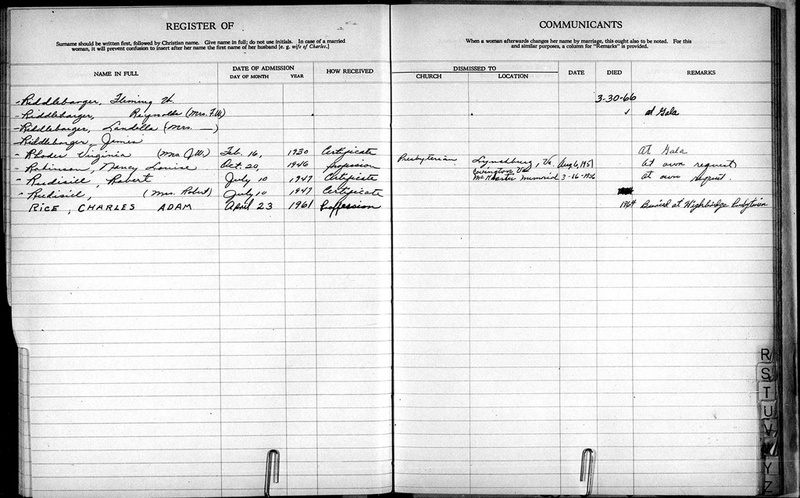 REGISTER OF
Surname should be written first, followed by Christian name. Give name in full; do not use initials. In case of a married
woman, it will prevent confusion to insert after her name the first name of her husband [e. g. wife of Charles.]
NAME IN FULL
DATE OF ADMISSION
DAY OF MONTH YEAR
HOW RECEIVED
COMMUNICANTS
When a woman afterwards changes her name by marriage, this ought also to be noted. For this
and similar purposes, a column for "Remarks" is provided.
DISMISSED TO
CHURCH LOCATION
DATE DIED REMARKS
-Riddlebarger, Fleming 3-30-66
-Riddlebarger, Reynolds (Mrs. F.W.) at Gala
-Riddlebarger, Landella (Mrs —)
Riddlebarger, James
-Rhodes Virginia (Mrs J.W.) Feb. 16, 1930 Certificate At Gala
-Robinson, Nancy Louise Oct 20, 1946 profession Presbyterian Lynchburg, Va Aug 6, 1951 at own request
-Rudisill, Robert July 10 1947 Certificate Covington Va
McAllister Memorial 3-16-1956 at own request.
-Rudisill, (Mrs. Robert) July 10 1947 Certificate
RICE, CHARLES ADAM April 23 1961 Profession 1964 Buried at Highbridge
R
S
T
U
V
Y
Z